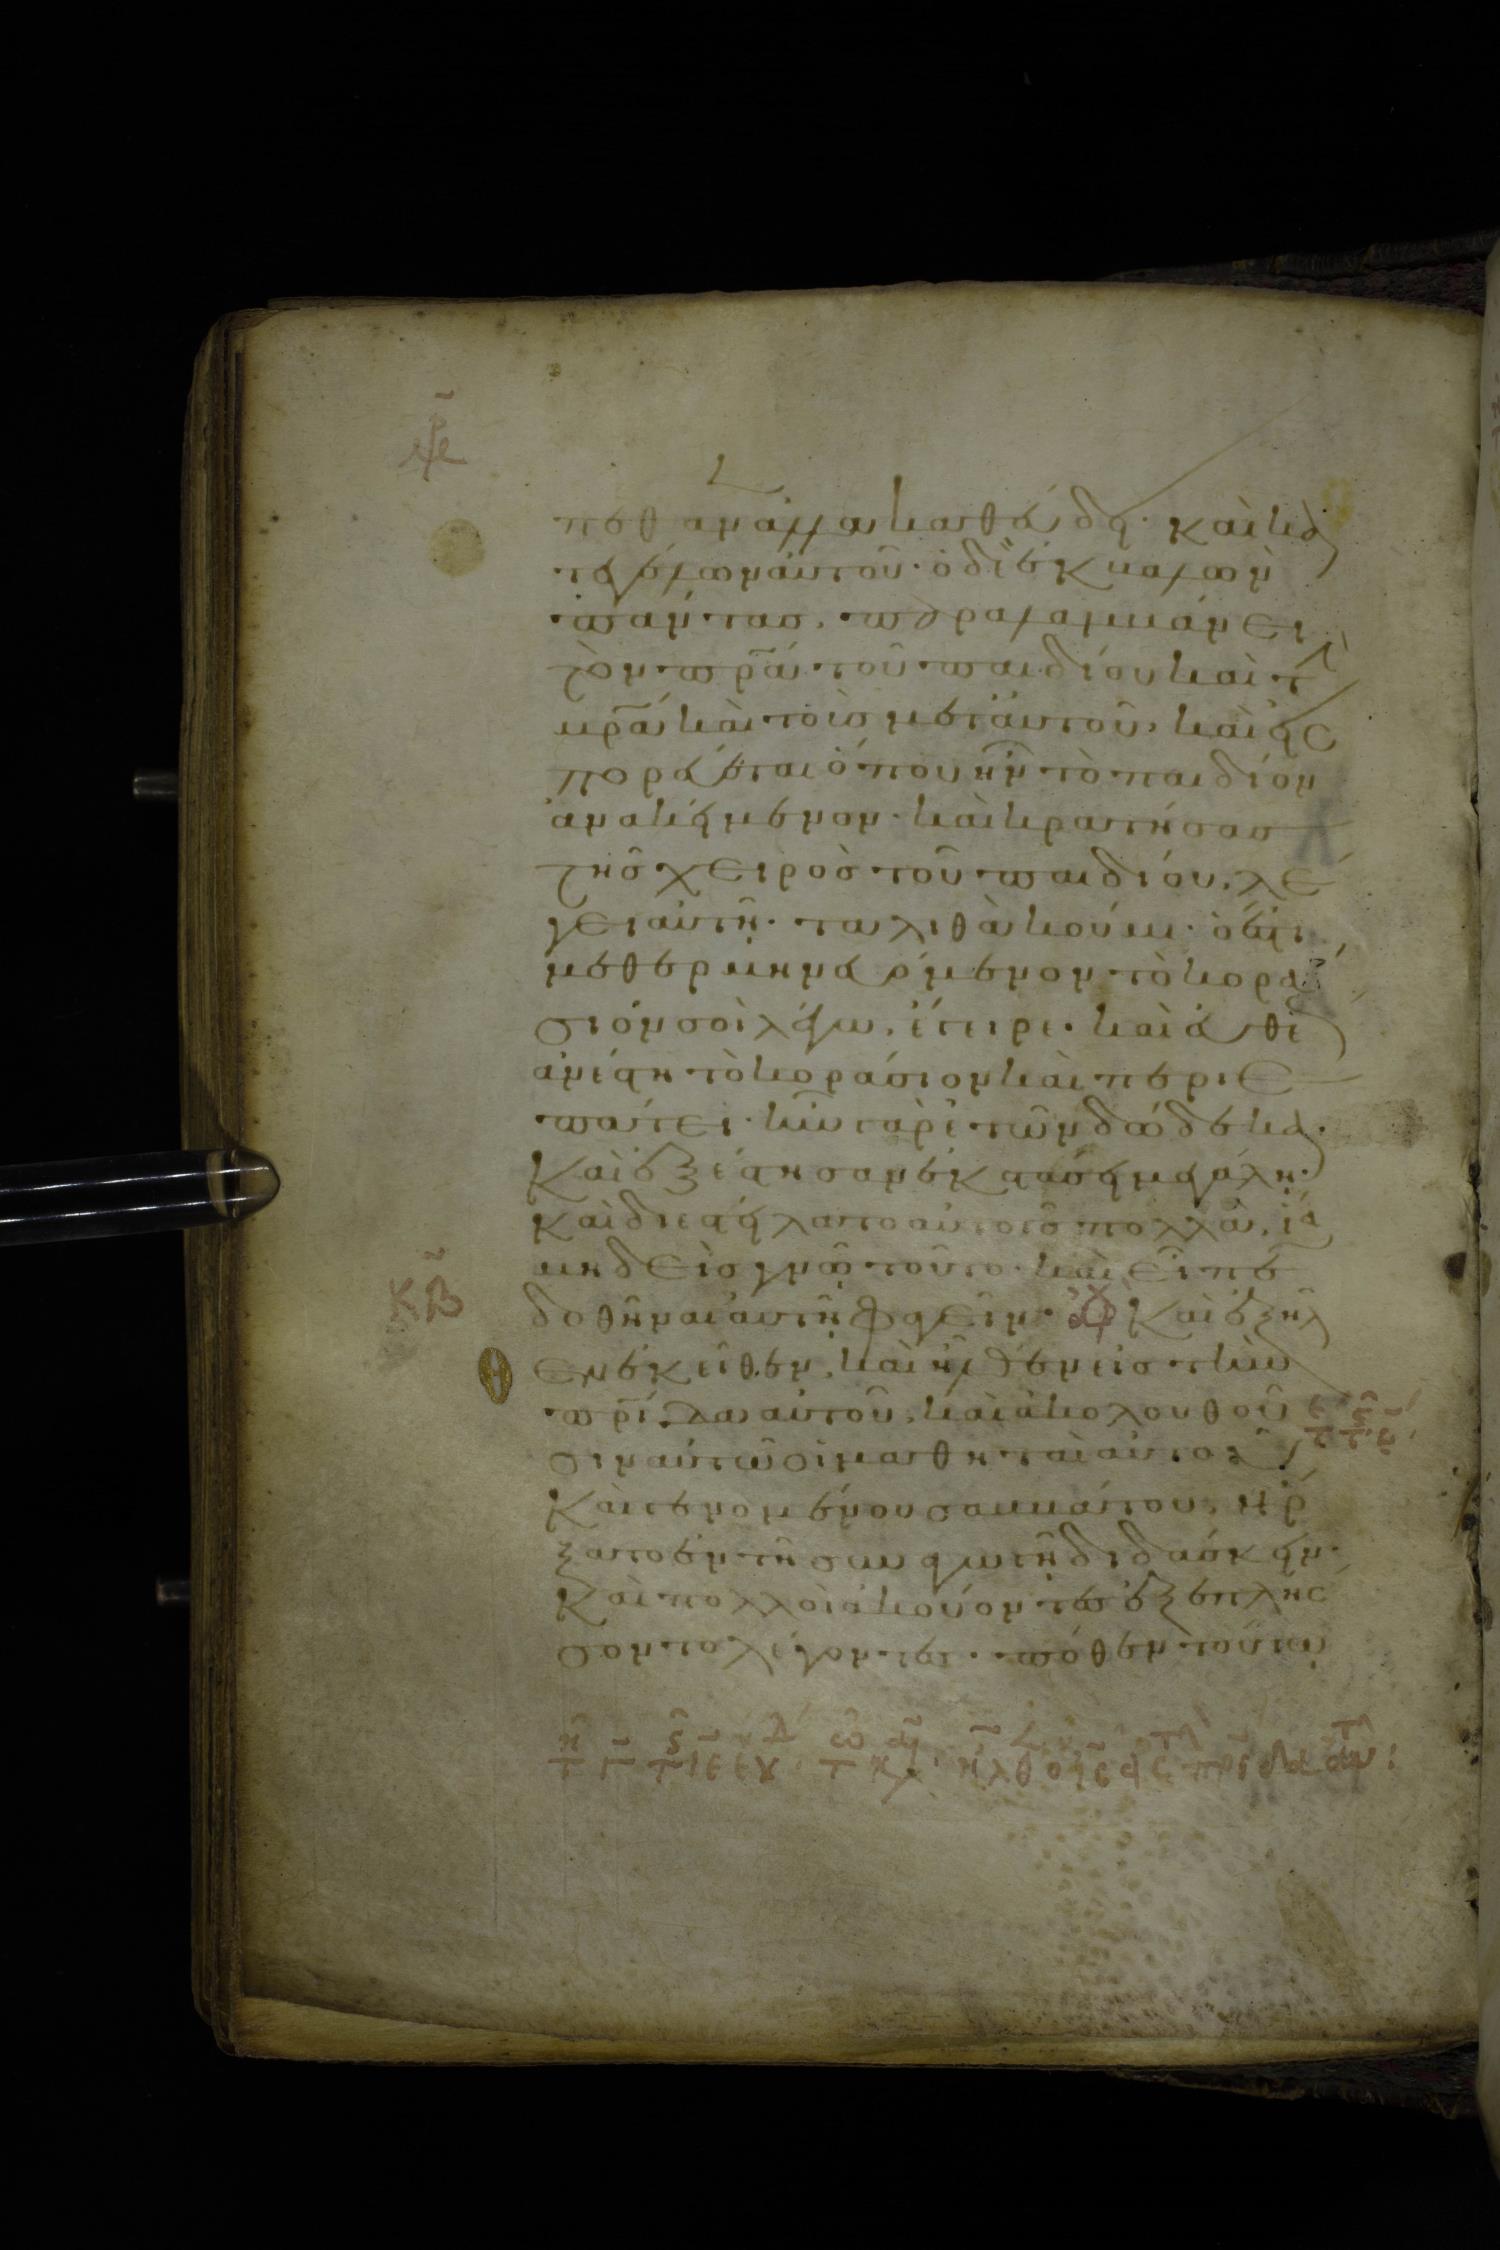 πεθανεν ἀλλὰ καθεύδει· καὶ κα
τεγέλων αὐτοῦ· ὁ δὲ ἐκβαλὼν
πάντας, παραλαμβάνει
τὸν πρα τοῦ παιδίου καὶ τὴν
μρα καὶ τοὺς μετ αὐτοῦ, καὶ εἰσ
πορεύεται ὅπου ἦν τὸ παιδίον
ἀνακείμενον· καὶ κρατήσας
τῆς χειρὸς τοῦ παιδίου, λέ
γει αὐτῇ· ταλιθὰ κούμι· ὅ ἐστι
μεθερμηνευόμενον τὸ κορά
σιον σοὶ λέγω, ἔγειρε· καὶ εὐθὺς
ἀνέστη τὸ κοράσιον καὶ περιε
πάτει· ἦν γὰρ ἐτῶν δώδεκα·
Καὶ ἐξέστησαν ἐκστάσει μεγάλῃ·
καὶ διεστείλατο αὐτοῖς πολλὰ, ἵνα
μηδεὶς γνῷ τοῦτο· καὶ εἶπε
δοθῆναι αὐτῇ φαγεῖν· Καὶ ἐξῆλ
θεν ἐκεῖθεν, καὶ ἦλθεν εἰς τὴν
πρίδα αὐτοῦ, καὶ ἀκολουθοῦ
σιν αὐτῷ οἱ μαθηταὶ αὐτοῦ·
Καὶ γενομένου σαββάτου, ἤρ
ξατο ἐν τῇ συναγωγῇ διδάσκειν·
Καὶ πολλοὶ ἀκούοντες ἐξεπλήσ
σοντο λέγοντες· πόθεν τούτῳ